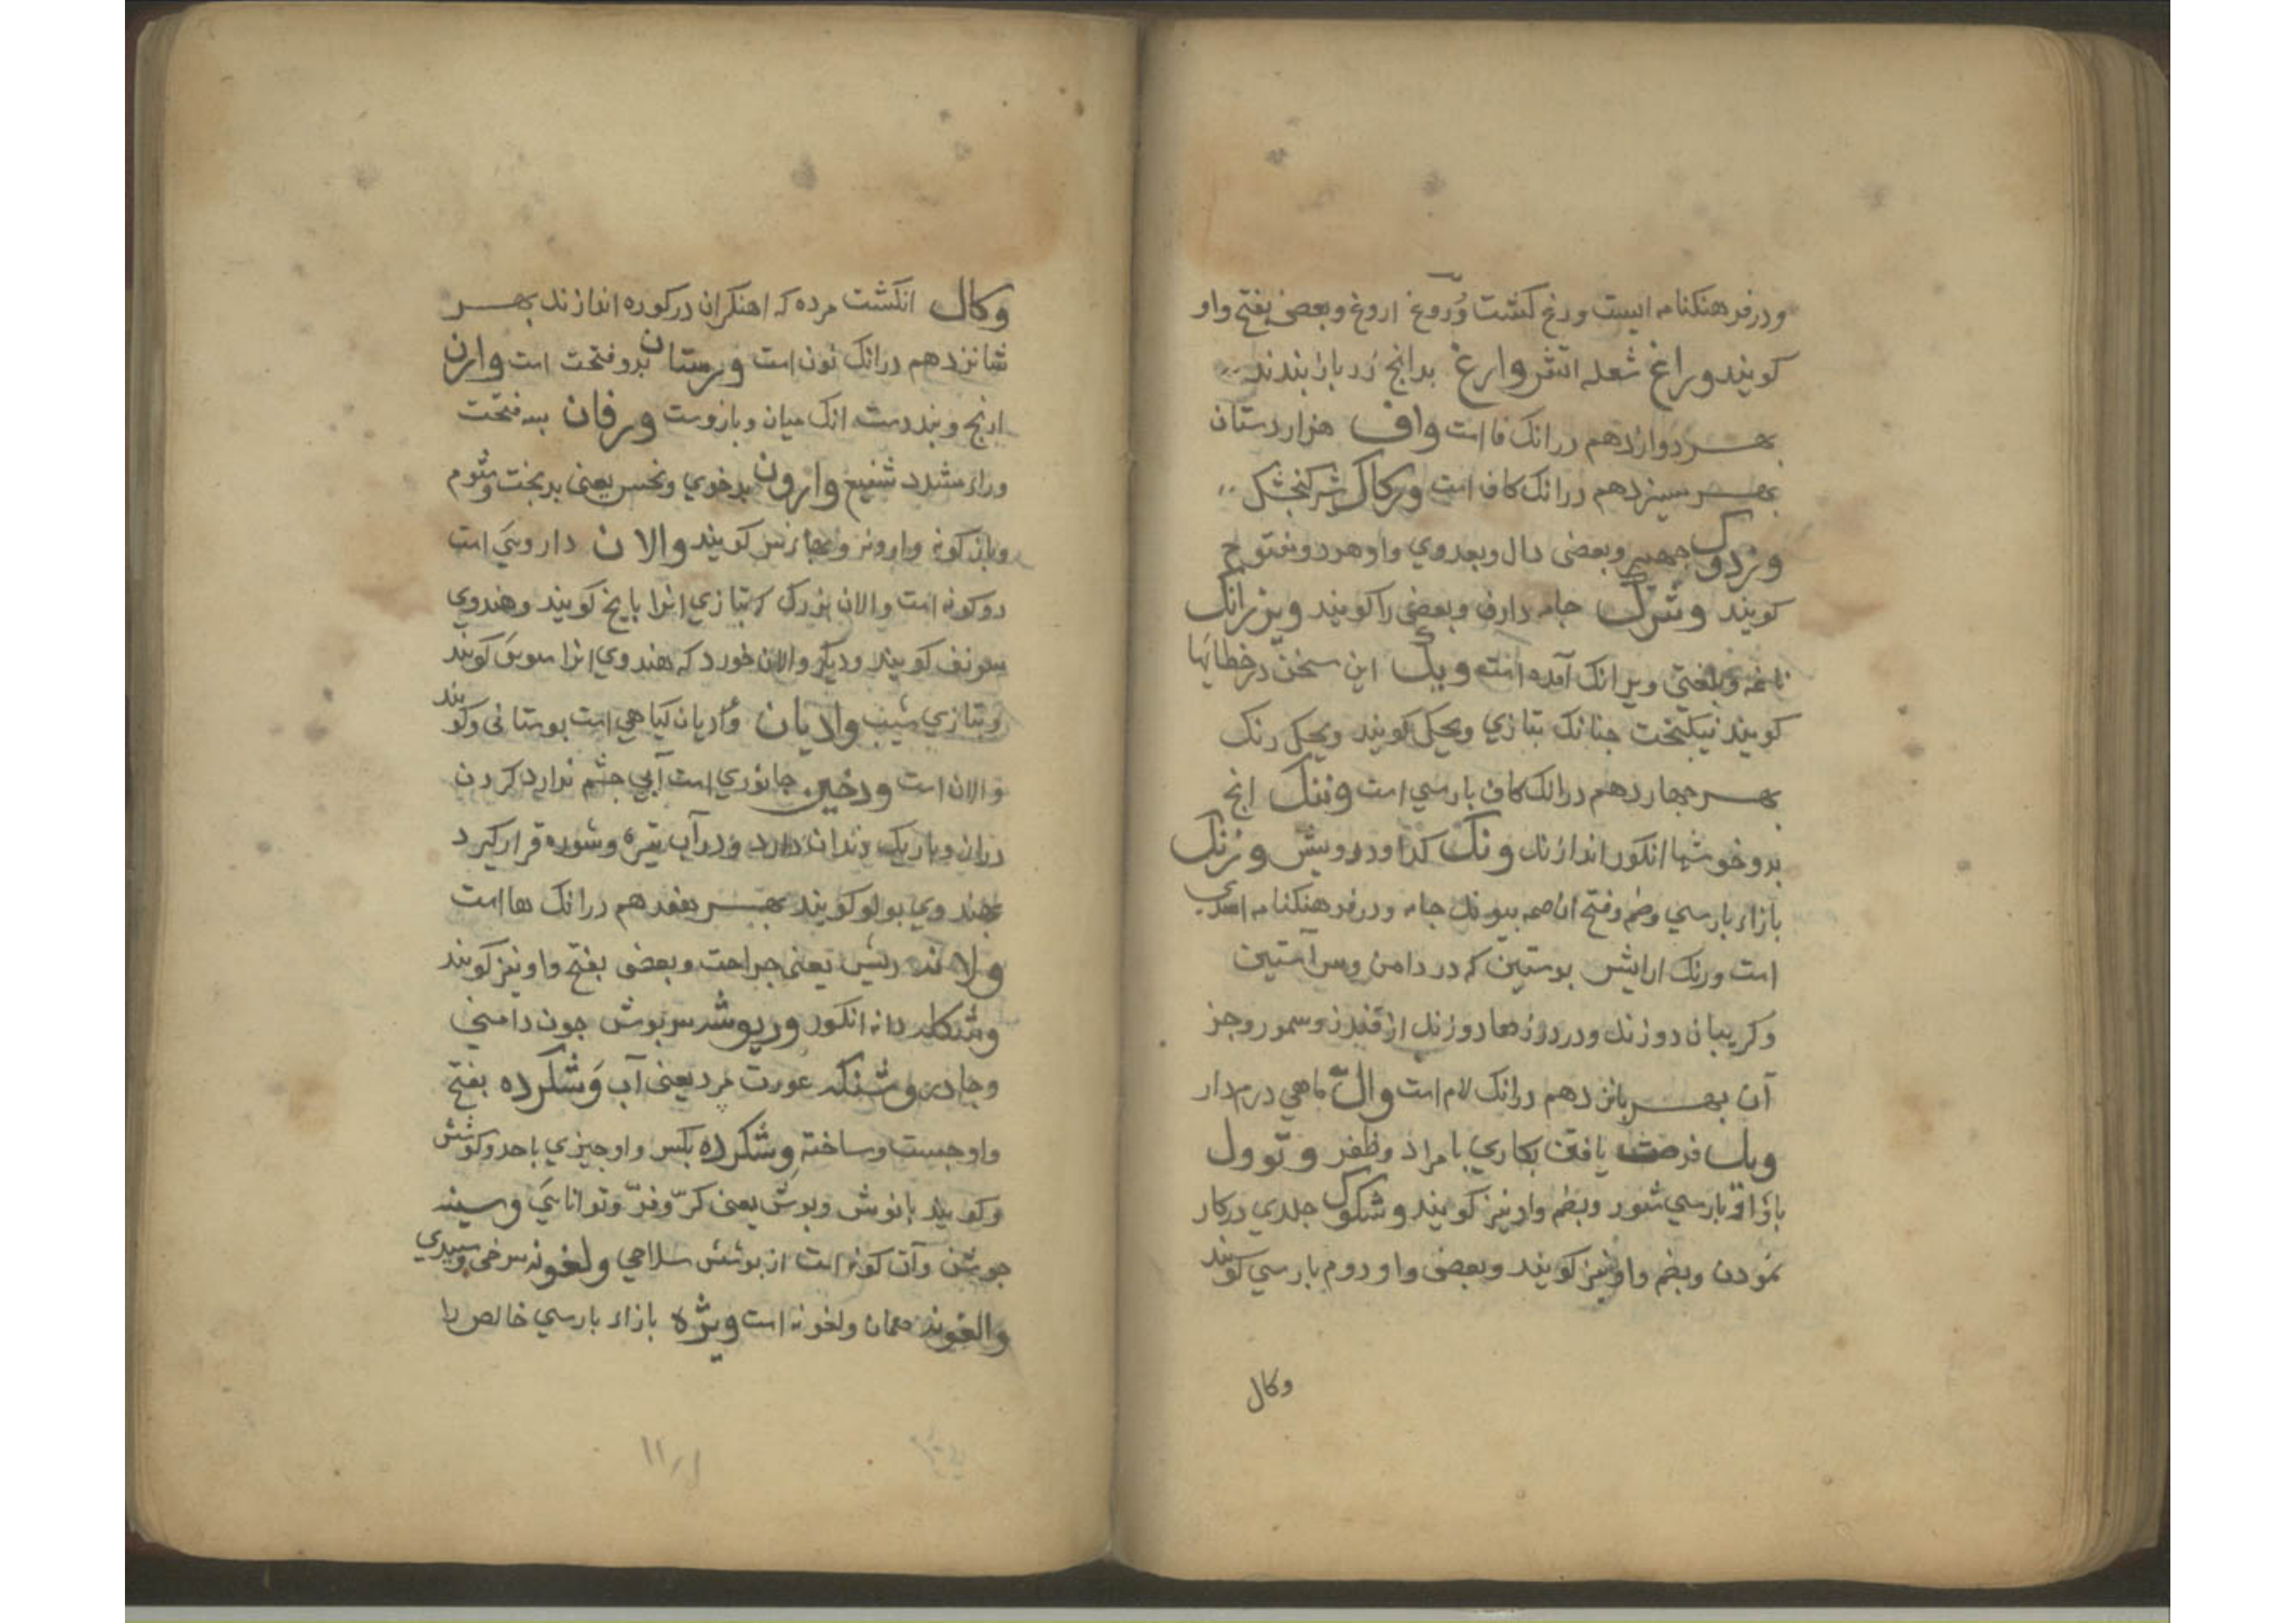 ودر فرهنکنامه است ورغ کشت وُروغ اروغ وبعضی بفتح واو
کویند وراغ شعله اتش وارغ بدانج زر بازبندند
بهر دوازدهم درانک فا است واف هزاردستان
بهر سیزدهم درانک کاف است ورکاک شرکنجشک
وزدوک وبعضی دال وبعدوی واو هردو مفتوح
کویند وشرک جامه دارف وبعضی را کویند ویزرانک
ویرانک آمده است ویک این سخن درخطایها
کویند نیکبخت جنانک بتازی ویحک کویند ویحک رنک
بهر جهاردهم درانک کاف بارسی است وننک انج
برو خوشها انکور اندازند ونک کدا ودرویش وزنک
بازاء بارسی وضم وفتح ان بیوند جامه ودر فرهنکنامه
است ورنک ارایش بوستین که در دامن وسر آستین
وکریبان دوزند ودر درزها دوزند از قندز وسمور وجز
آن بهر بانزدهم درانک لام است وال ماهی درم دار
ویل فرصت یافتن بکاری بامراد وظفر وتوول
بازاء بارسی شور وبضم واو نیز کویند وشکوک جلدی درکار
نمودن وبضم واو نیز کویند وبعضی واو دوم بارسی کویند
وکال
وکال انکشت مرده که اهنکران درکوره اندازند بهر
شانزدهم درانک نون است ورستان بدو فتحت است وارن
ارنج وبند دست انک میان وبازوست ورفان بسه فتحت
وراء مشدد شفیع وارون بدخوی ونحس یعنی بدبخت وشوم
وباز کونه وارونر ومجازنس کویند والان داروییَ است
دوکونه است والان بزرک که بتازی انرا بایخ کویند وهندوی
سونف کویند ودیکر والان خورد که هندوی انرا سوی کویند
وبتازی شیب وادیان وُادیان کیاهی است بوستانی وکویند
والان است ورخین جانوری است آبی جشم ندارد کردن
دراز وباریک دندان دارد ودر آب تیره وشوره قرار کیرد
بهندوی بولو کویند بهر هفدهم درانک ها است
ولانه ریش یعنی جراحت وبعضی بفتح واو نیز کویند
وشکله دانه انکور ورپوشه سربوش جون دامنی
وجادر وشنکه عورت مرد یعنی آب وَشکرده بفتح
واو جست وساخته وِشکرده بکسر واو جیزی باحد وکوشش
وکویند بانوش وبوش یعنی کرّ وفرّ وتوانایَی وسینه
جوشن وآن کونه است از بوشش سلاحی ولغونه سرخی وسبیدی
والغونه همان ولغونه است ویژه بازاء بارسی خالص را